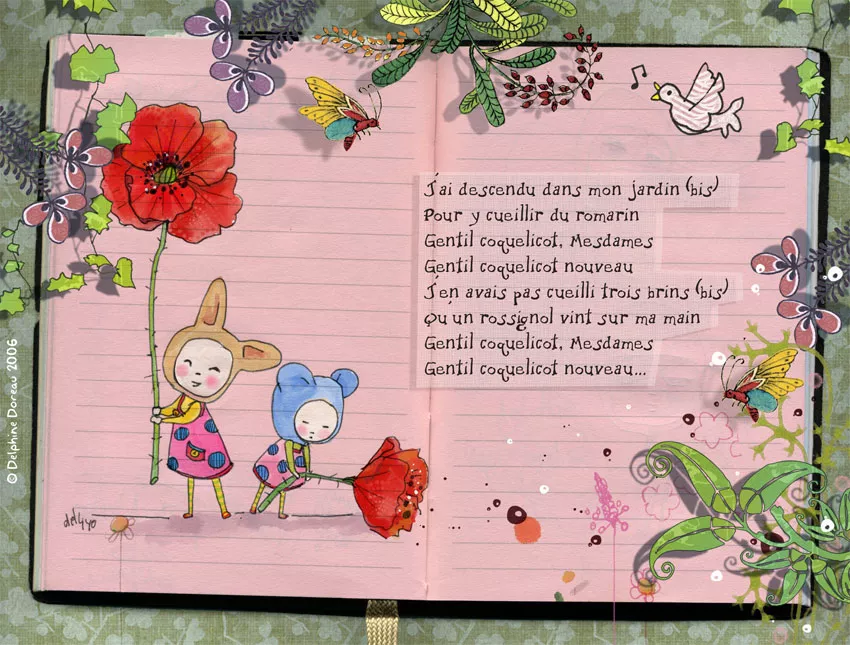 J'ai descendu dans mon jardin (bis)
Pour y cueillir du romarin
Gentil coquelicot, Mesdames
Gentil coquelicot nouveau
J'en avais pas cueilli trois brins (bis)
Qu'un rossignol vint sur ma main
Gentil coquelicot, Mesdames
Gentil coquelicot nouveau...
© Delphine Doreau 2006
del4yo